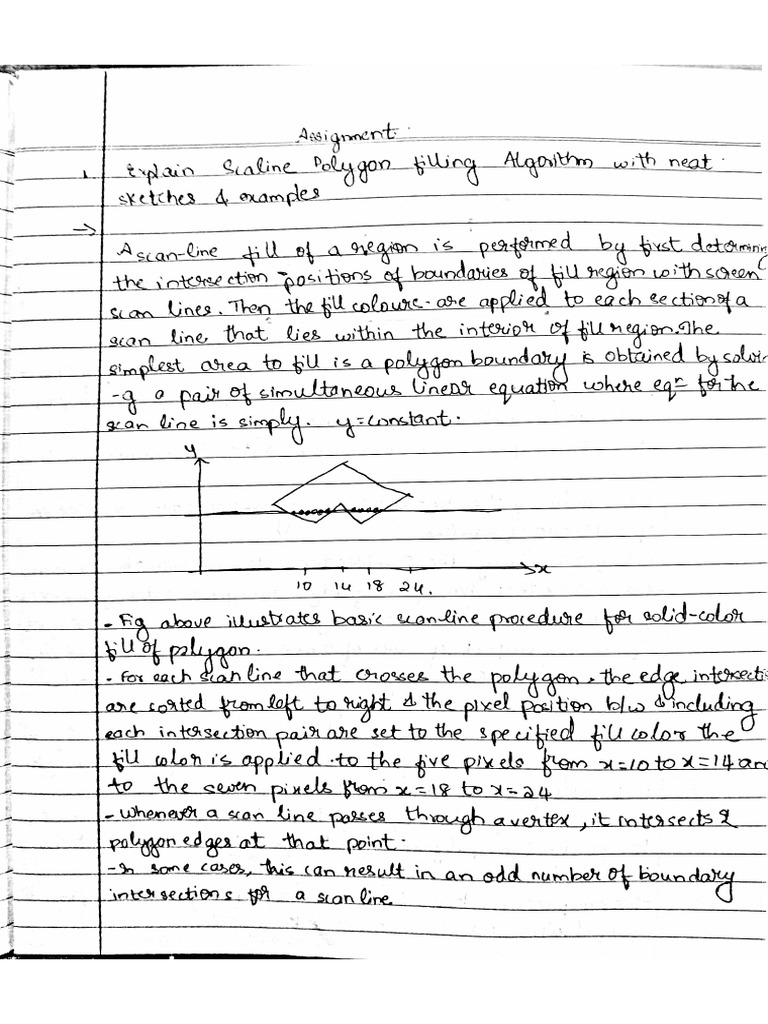 Assignment.
1. Explain Scaline Polygon filling Algorithm with neat
sketches & examples
→
A scan-line fill of a region is performed by first determining
the intersection positions of boundaries of fill region with screen
scan lines. Then the fill coloure are applied to each section of a
scan line that lies within the interior of fill region. The
simplest area to fill is a polygon boundary is obtained by solvin
-g a pair of simultaneous linear equation where eqⁿ for the
scan line is simply. y=constant.
y
x
10 14 18 24.
- Fig above illustrates basic scan-line procedure for solid-color
fill of polygon.
- For each scan line that crosses the polygon, the edge intersecti
are sorted from left to right & the pixel position b/w & including
each intersection pair are set to the specified fill color the
fill color is applied to the five pixels from x=10 to x=14 an
to the seven pixels from x=18 to x=24
- Whenever a scan line passes through a vertex, it intersects 2
polygon edges at that point.
- In some cases, this can result in an odd number of boundary
intersections for a scan line